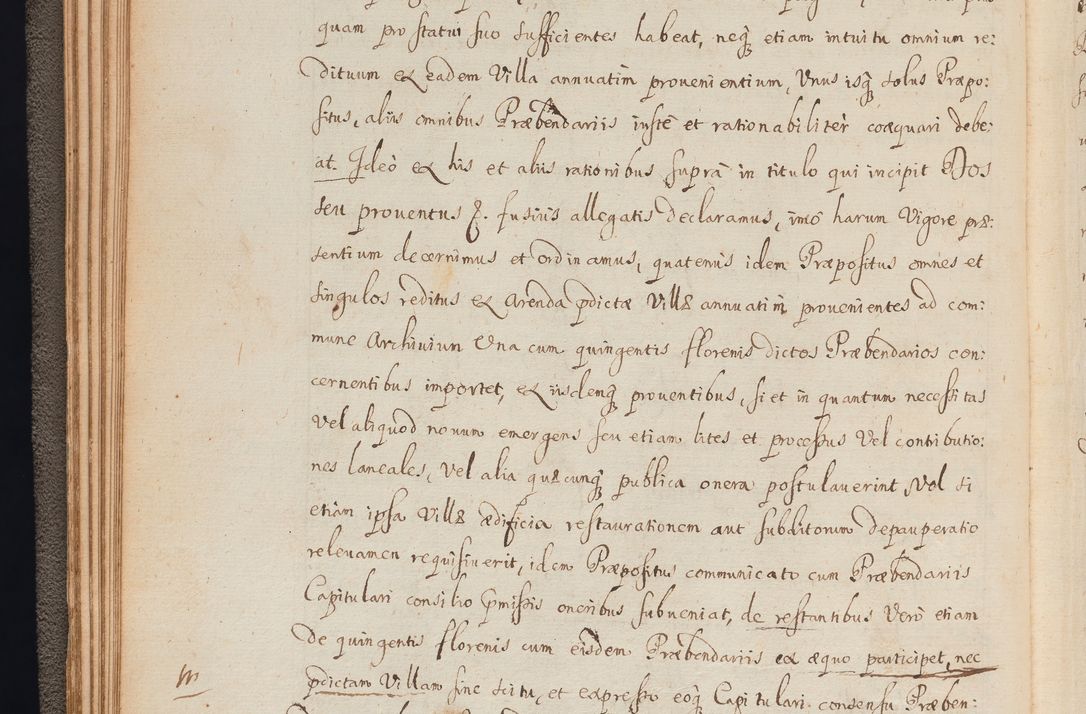 quam pro statu suo sufficientes habeat, neq3 etiam intuitu omnium re:
dituum ex eadem Villa annuatim provenientium, Unus isq3 solus Præpo:
situs, aliis omnibus Præbendariis iustè et rationabilitèr coæquari debe:
at. Ideò ex his et aliis rationibus suprà in titulo qui incipit Dos
seu proventus &. fusius allegatis declaramus, imò harum Vigore præ:
sentium decernimus et ordinamus, quatenus idem Præpositus omnes et
singulos reditus ex Arenda pdictæ Villæ annuatim provenientes ad com:
mune Archivium Una cum quingentis florenis dictos Præbendarios con:
cernentibus importet, ex iisdemq3 proventibus, si et in quantum necessitas
Vel aliquod novum emergens seu etiam lites et processus Vel contributio:
nes laneales, Vel alia quæcunq3 publica onera postulaverint, Vel si
etiam ipsa Villæ ædificia restaurationem aut subditorum depauperatio
relevamen requisiverit, idem Præpositus communicato cum Præbendariis
Capitulari consilio pmissis oneribus subveniat, de restantibus Verò etiam
de quingentis florenis cum eisdem Præbendariis ex æquo participet, nec
pdictam Villam sine scitu, et expresso eoq3 Capitulari consensu Præben: